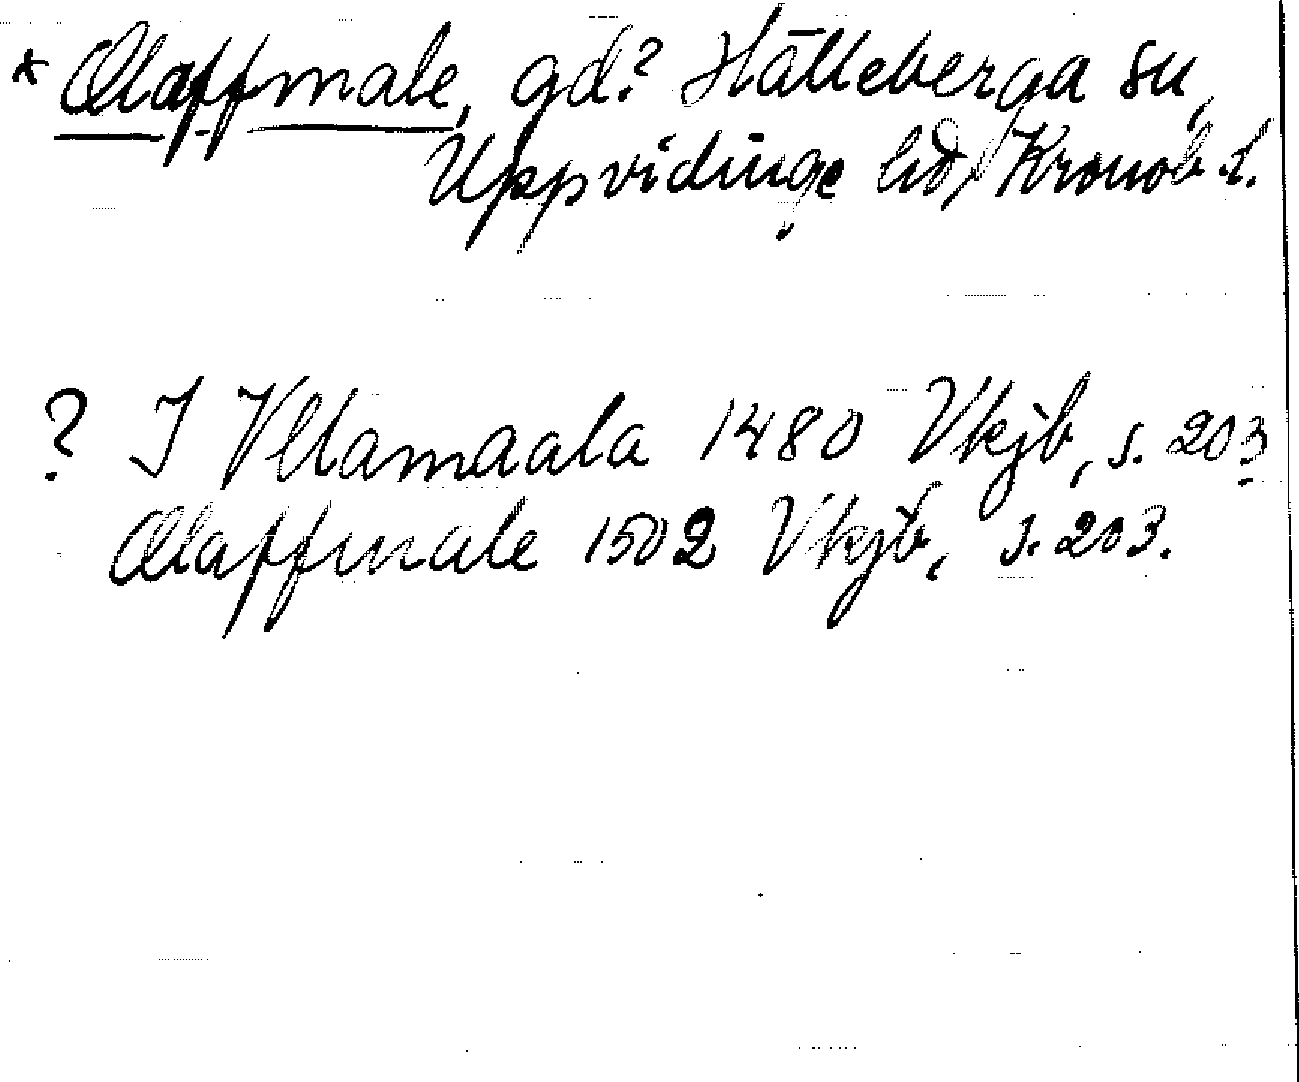 * Olaffmale, gd? Hälleberga sn,
Uppvidinge hd, Kronob. l.
? I Vllamaala 1480 Vkjb, s. 203
Olaffmale 1502 Vkjb, s. 203.